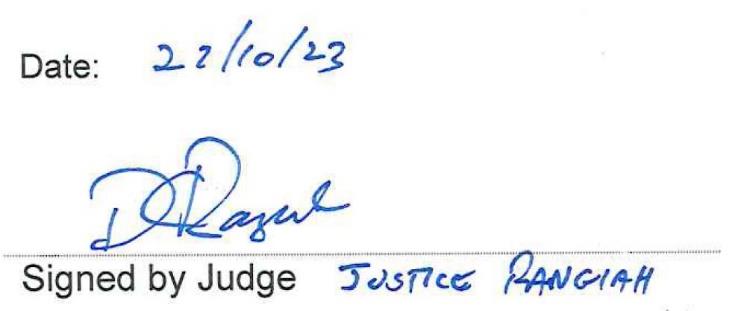 Date: 22/10/23
Signed by Judge JUSTICE RANGIAH